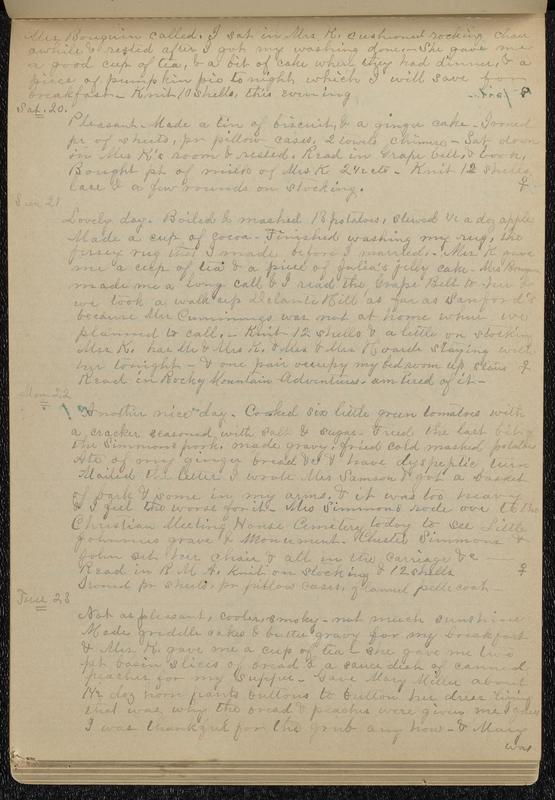 Mrs Bourquin called. I sat in Mrs. K. cushioned rocking chair
awhile & rested after I got my washing done. - She gave me
a good cup of tea, & a bit of cake when they had dinner, & a
piece of pumpkin pie to night, which I will save for
breakfast - Knit 10 shells, this evening
Sat. 20.
Pleasant. Made a tin of biscuit, & a ginger cake - Ironed
pr of sheets, pr pillow cases, 2 towels chimese - Sat down
in Mrs K's room & rested. Read in Grape belt, & book,
Bought pt of milk of Mrs K 2 1/2 cts - Knit 12 shells
lace & a few rounds on stocking.
Sun 21
Lovely day. Boiled & mashed 18 potatoes, stewed 1/2 a doz apples
Made a cup of cocoa - Finished washing my rug, the
rug that I made, before I married. - Mrs K gave
me a cup of tea & a piece of Julia's jelly cake - Mrs
made me a long call & I read the Grape Belt to her &
we took a walk up Delante Hill as far as Sanford's
because Mrs Cummings was not at home where we
planned to call. - Knit 12 shells & a little on stocking
Mrs K. has Mr & Mrs K. & Mrs & Mrs Hoards staying with
her tonight - & one pair occupy my bedroom up stairs
Read in Rocky Mountain Adventures. am tired of it -
Mon 22
Another nice day. Cooked six little green tomatoes with
a cracker seasoned with salt & sugar - Fried the last bit of
the Simmons pork. made gravy. fried cold mashed potatoes
Ate of my ginger bread &c & have dyspeptic
Mailed the letter I wrote Mrs Samson & got a basket
of bark & some in my arms, & it was too heavy
& I feel the worse for it - Mrs Simmons rode over to the
Christian Meeting House Cemetery today to see Little
Johnnies grave & Monument. Chester Simmons &
John set her chair & all in the carriage &c
Read in R M A, knit on stocking & 12 shells
Ironed pr sheets, pr pillow cases, & canned petti coat
Tues 23
Not as pleasant, cooler, smoky - not much sunshine
Made griddle cakes & butter gravy for my breakfast
& Mrs. K. gave me a cup of tea - She gave me two
slices of bread & a sauce dish of canned
peaches for my supper - Gave Mary Miller about
1/2 doz horn pants buttons to button her dress lining
that was why the bread & peaches were given me I guess
I was thankful for the grub any how - & Mary
was